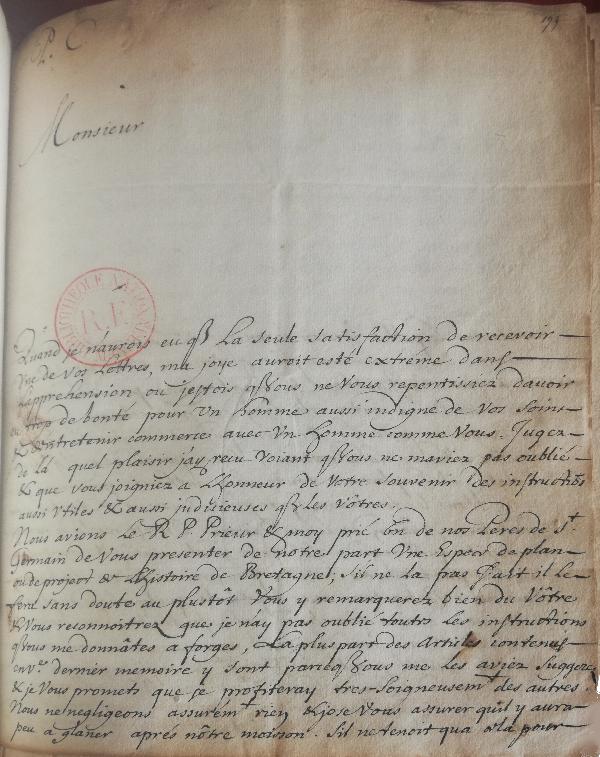 P. C
193
Monsieur
BIBLIOTHEQUE NATIONALE
R.F.
Quand je n'aurois eu q̃ la seule satisfaction de recevoir
vne de vos lettres, ma joye auroit esté extréme dans
l'apprehension ou j'estois q̃ vous ne vous repentissiez d'avoir
trop de bonté pour vn homme aussi indigne de vos soins
& d'entretenir commerce avec vn homme comme vous. Jugez
de là quel plaisir j'ay recu voiant q̃ vous ne m'aviez pas oublié
& que vous joigniez a l'honneur de votre souvenir des instructiõs
aussi vtiles & aussi judicieuses q̃ les vôtres.
Nous avions le R. P. Prieur & moy prié un de nos Peres de St.
Germain de vous presenter de notre part vne Espece de plan
ou de project de l'histoire de Bretagne; s'il ne la pas fait il le
fera sans doute au plustôt vous y remarquerez bien du vôtre
& vous reconnoitrez que je n'ay pas oublié toutes les instructions
q̃ vous me donnâtes a forges, la pluspart des Articles contenus
en vre. dernier memoire y sont parceq̃ vous me les aviez suggerez
& je vous promets que je profiteray tres-soigneusemt des autres.
Nous ne negligeons assurémt rien & j'ose vous assurer qu'il y aura
peu a glaner après nôtre moisson. S'il ne tenoit qu'a cela pour